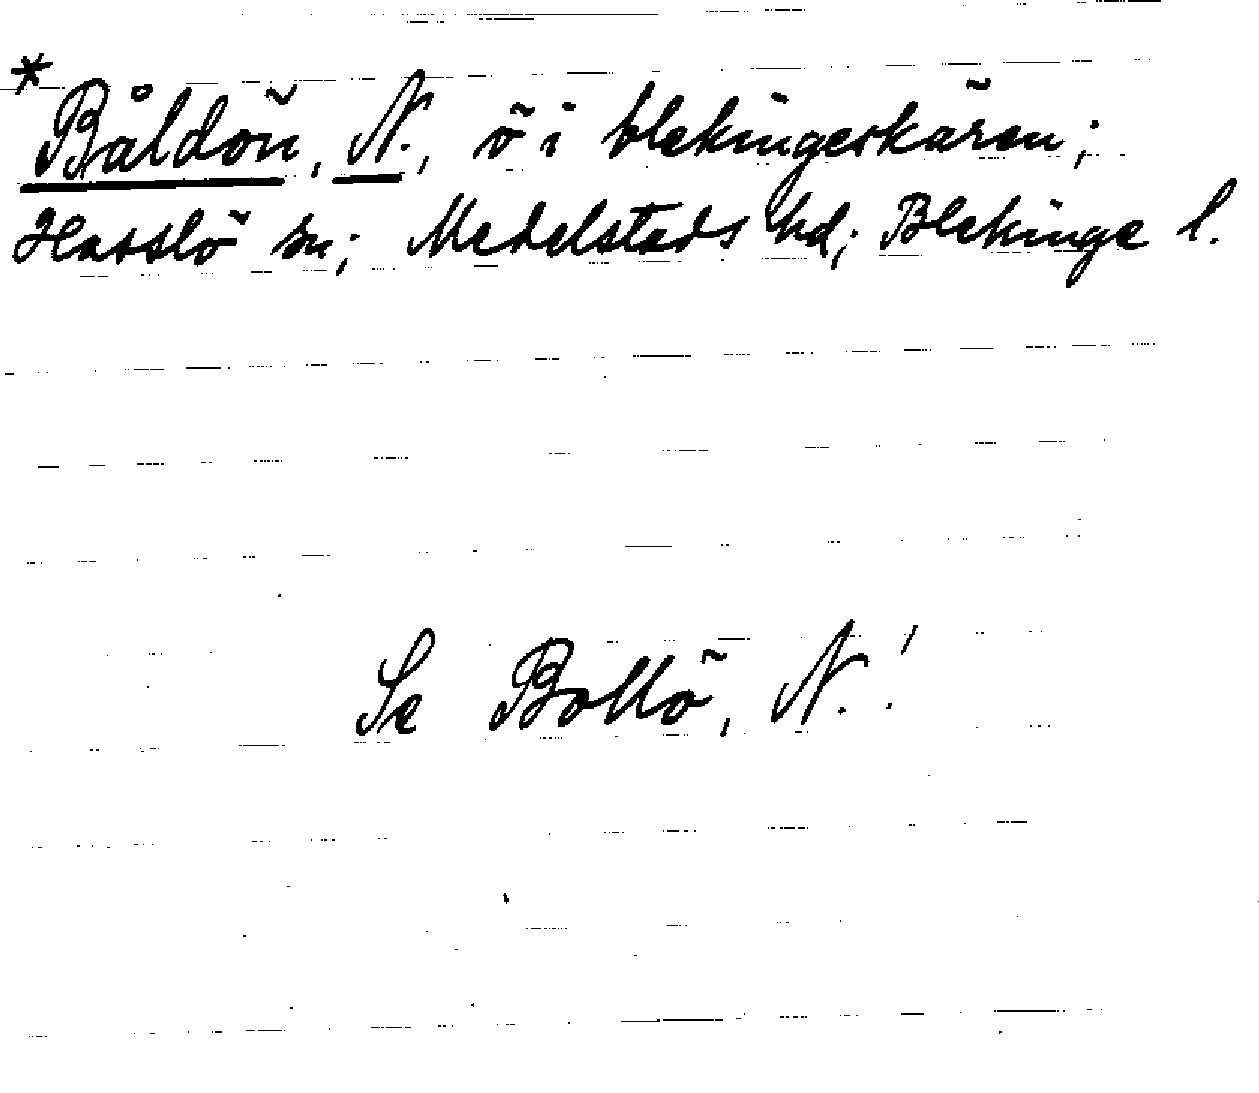 *Båldön, N., ö i blekingeskären;
Hasslö sn; Medelsteds hd; Blekinge l.
Se Bollö, N.!